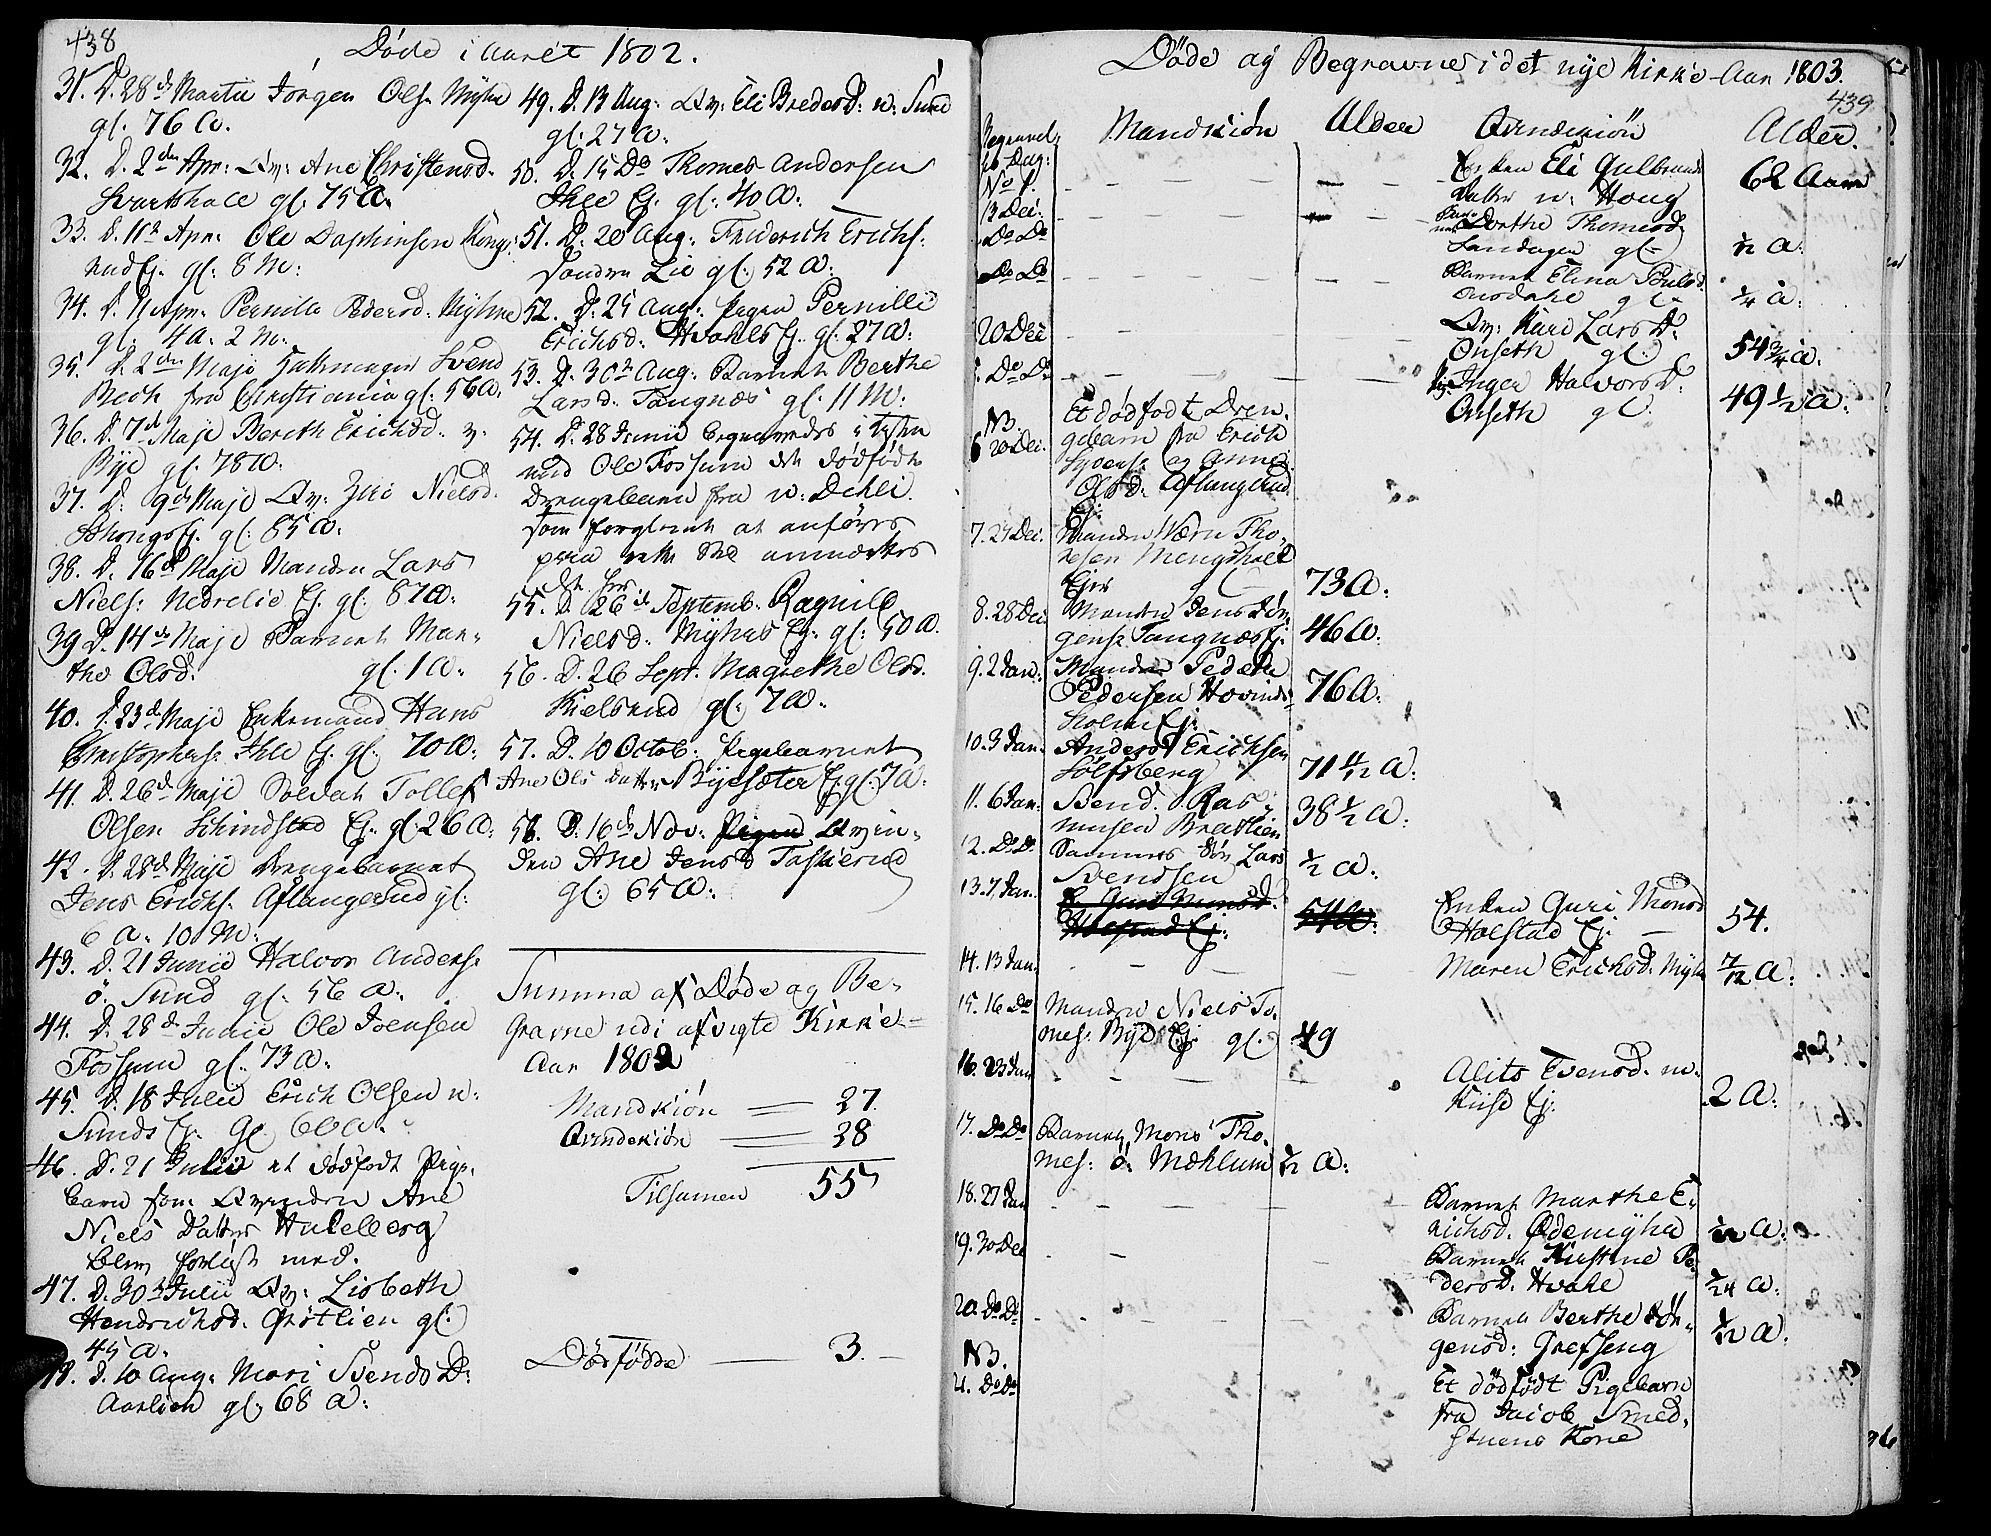 438
Døde i Aaret 1802.
31. D. 28d Martii Jørgen Ols. Myhre
gl. 76 a.
32. D. 2den Apr: Qv: Ane Christensd.
gl. 75 a.
33. D. 11te Apr: Ole
gl. 8 M:
34. D. 11 Apr. Pernille Pedersd. Myhre
gl. 4 a. 2 M.
35. D. 2den Maji Svend
Beck fra Christiania gl. 56 a.
36. D. 7d Maji Berith Erichsd.
Bye gl. 78 a.
37. D. 9de Maji Qv: Nielsd.
gl: 85 a.
38. D. 16d Maji Manden Lars
Niels: Nedrelie Ej. gl. 87 a.
39 D. 14de Maji Barnet Mar-
the Olsd. gl. 1 a.
40. D. 23d Maji Enkemand Hans
Christophers. Ihle Ej. gl. 70 a.
41. D. 26d Maji Soldat Tollef
Olsen Schindstad Ej. gl. 26 a.
42. D. 28d Maji Drengebarnet
Jens Erichs. Aflangerud gl:
6 a. 10 M.
43. D. 21 Junii Halvor Anders.
ö. Sund gl. 56 a.
44. D. 28d Junii Ole Ivensen
Fossum gl. 73 a.
45. D. 18 Julii Erich Olsen n.
Sunds Ej. gl. 66 a.
46. D. 21 Julii et dødfødt Pige-
barn som Qvinden Ane
Niels Datter Huleberg
blev forløst med.
47. D. 30te Julii Qv: Lisbeth
Hendrichsd. Grötlien gl.
45 a.
48. D. 10 Aug. Mari Svends D:
Aarlien gl. 68 a:
49. D. 13 Aug: Qv: Eli Bredesd: n: Sund
gl. 27 a.
50. D. 15 Do Thomes Andersen
Ihle Ej. gl. 40 a.
51. D. 20 Aug: Friderich Erichs.
Søndre Lie gl. 52 a.
52. D. 25 Aug: Pigen Pernille
Erichsd. Hvahls Ej. gl. 27 a:
53. D. 30te Aug: Barnet Berthe
Larsd. Tangnæs gl. 11 M.
54. D. 28 Junii begravedes
Ole Fossum det dødfødte
Drengebarn fra n: Dehli
som forglemt at anføres
paa rette Sted anmærkes
det her
55. D. 26de Septemb. Ragnild
Nielsd. Myhres Ej. gl: 50 a.
56. D. 26 Sept. Magrethe Olsd.
Kielsrud gl. 7 a.
57. D. 10 Octob. Pigebarnet
Ane Ols Datter Byesæter Ej. gl. 7 a.
58. D. 16de Nov: Pigen Qvin-
den Ane Jensd Taskerud
gl. 65 a.
Summa af Døde og Be-
gravne udi afvigte Kirke-
Aar 1802
Mandkiøn — 27.
Qvindekiøn — 28
Tilsamen 55
Dödfødde — 3.
Döde og Begravne i det nye Kirke-Aar 1803.
439
Mandkiön Alder Qvindekiön Alder.
Enken Eli Gulbrands
Datter n: Houg 62 Aar
13 Dec:
Do Do Dorthe Thomesd.
gl 1/12 a:
Do Do Barnet Elina Poulsd
gl. 1/4 a:
20 Dec Qv: Kari Lars D:
Onseth gl. 54 3/4 a:
Do Do Inger Halvors D:
Onseth gl. 49 1/2 a:
NB. Et dødfødt Dren-
6 20 Dec. gebarn fra Erich
Syvers. og Anne
Olsd. Aflangerud
Ej:
7. 27 Dec. Manden Tho-
mesen Mengshoel
Ejer 73 a:
8. 28 Dec Manden Jens Jör-
gens. Tangnæs Ej. 46 a:
9. 2 Jan: Manden Peder
Pedersen Hovinds-
holm Ej: 76 a:
10. 3 Jan. Anders Erichsen
Sölfsberg 71 1/12 a:
11. 6 Jan: Svend Ras-
musen Bratlien 38 1/2 a:
12. Do Do Sammes Søn Lars
Svendsen 1/2 a:
13. 7 Jan. E. Guri Monsd.
Holstad Ej: 54 a: Enken Guri Monsd
Holstad Ej: — 54.
14. 13 Jan. Maren Erichsd. Myhr 7/12 a:
15. 16 Do Manden Niels To-
mes: Bye Ej: gl. 49
16. 23 Jan Alits Evensd. n.
Kiise Ej: 2 a:
17. Do Do Barnet Mons Tho-
mes: ö: Mæhlum 1/12 a:
18. 27 Jan Barnet Marthe E-
richsd. Ødemyhre 1/12 a:
19. 30 Do Barnet Kirstine Pe-
dersd. Hvahl 1/24 a:
20. Do Do Barnet Berthe Jör-
gensd: Grefseng 1/12 a:
NB.
21. Do Do Et dödfödt Pigebarn
fra Jacob Smed-
stuens Kone